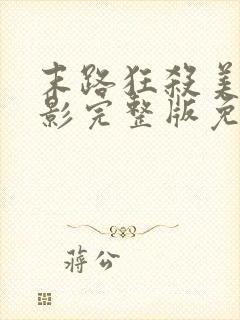 末路狂殺美
影完整版免
蔣公